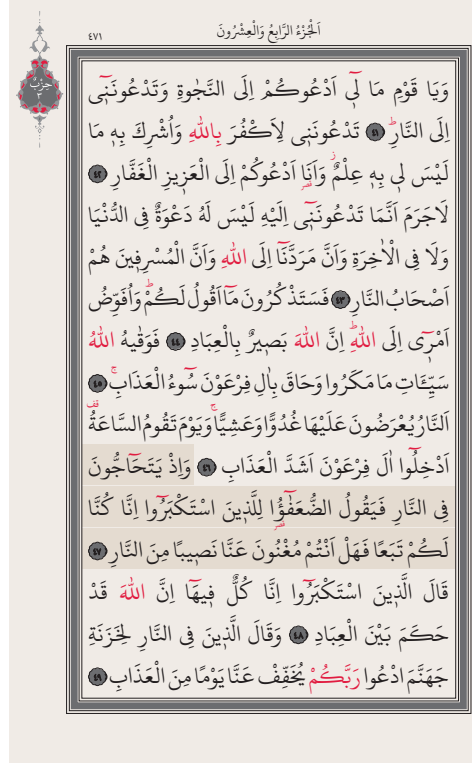 اَلْجُزْءُ الرَّابِعُ وَالْعِشْرُونَ
٤٧١
حزب
٣
وَيَا قَوْمِ مَا لٖٓي اَدْعُوكُمْ اِلَى النَّجٰوةِ وَتَدْعُونَنٖٓي
اِلَى النَّارِؕ ٤١ تَدْعُونَنٖي لِاَكْفُرَ بِاللّٰهِ وَاُشْرِكَ بِهٖ مَا
لَيْسَ لٖي بِهٖ عِلْمٌؗ وَاَنَا۬ اَدْعُوكُمْ اِلَى الْعَزٖيزِ الْغَفَّارِ ٤٢
لَاجَرَمَ اَنَّمَا تَدْعُونَنٖٓي اِلَيْهِ لَيْسَ لَهُ دَعْوَةٌ فِي الدُّنْيَا
وَلَا فِي الْاٰخِرَةِ وَاَنَّ مَرَدَّنَٓا اِلَى اللّٰهِ وَاَنَّ الْمُسْرِفٖينَ هُمْ
اَصْحَابُ النَّارِ ٤٣ فَسَتَذْكُرُونَ مَٓا اَقُولُ لَكُمْؕ وَاُفَوِّضُ
اَمْرٖٓي اِلَى اللّٰهِؕ اِنَّ اللّٰهَ بَصٖيرٌ بِالْعِبَادِ ٤٤ فَوَقٰيهُ اللّٰهُ
سَيِّـَٔاتِ مَا مَكَرُوا وَحَاقَ بِاٰلِ فِرْعَوْنَ سُٓوءُ الْعَذَابِۚ ٤٥
اَلنَّارُ يُعْرَضُونَ عَلَيْهَا غُدُوًّا وَعَشِيًّاۚ وَيَوْمَ تَقُومُ السَّاعَةُ۠
اَدْخِلُٓوا اٰلَ فِرْعَوْنَ اَشَدَّ الْعَذَابِ ٤٦ وَاِذْ يَتَحَٓاجُّونَ
فِي النَّارِ فَيَقُولُ الضُّعَفٰٓؤُ۬ا لِلَّذٖينَ اسْتَكْبَرُٓوا اِنَّا كُنَّا
لَكُمْ تَبَعًا فَهَلْ اَنْتُمْ مُغْنُونَ عَنَّا نَصٖيبًا مِنَ النَّارِ ٤٧
قَالَ الَّذٖينَ اسْتَكْبَرُٓوا اِنَّا كُلٌّ فٖيهَٓا اِنَّ اللّٰهَ قَدْ
حَكَمَ بَيْنَ الْعِبَادِ ٤٨ وَقَالَ الَّذٖينَ فِي النَّارِ لِخَزَنَةِ
جَهَنَّمَ ادْعُوا رَبَّكُمْ يُخَفِّفْ عَنَّا يَوْمًا مِنَ الْعَذَابِ ٤٩